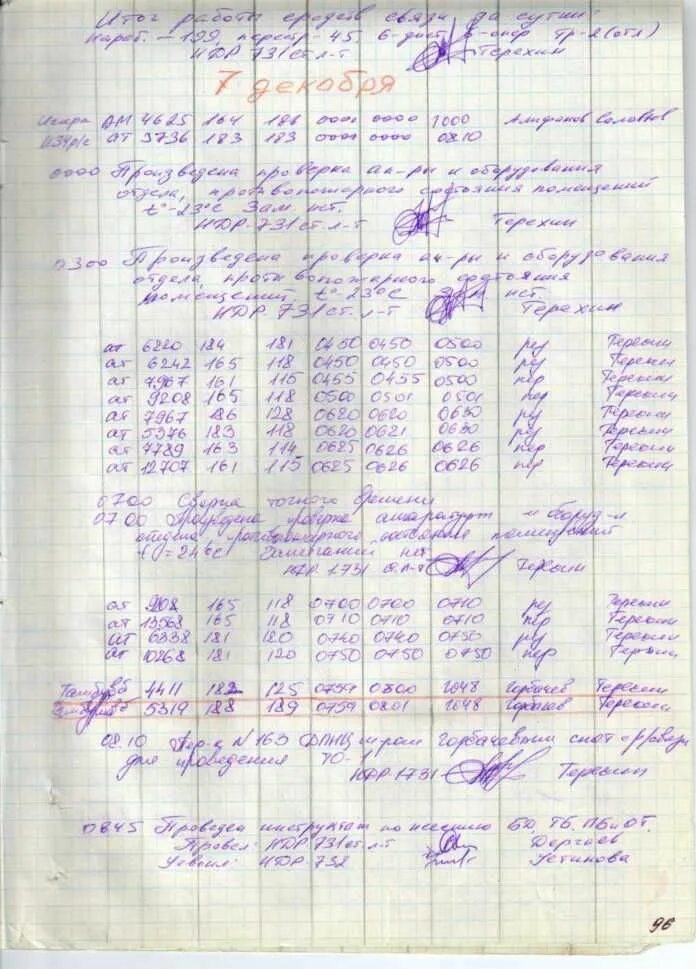 Итог работы средств связи за сутки:
Нараб. - 199, перестр - 45, 6-дист 5-опер Тр-2 (отл)
НДР 731 ст.л-т Терехин
7 декабря
Искра АМ 4625 164 186 0000 0000 1000 Алифанов Соловьёв
АТ 5736 183 183 0000 0000 0810
0000 Произведена проверка ап-ры и оборудования
отдела, противопожарного состояния помещений
t°-23°С Зам. нет.
НДР-731 ст.л-т Терехин
0300 Произведена проверка ап-ры и оборудования
отдела, противопожарного состояния
помещений, t°-23°С Зам нет
НДР 731 ст.л-т Терехин
ат 6220 184 181 0450 0450 0500 рез Терехин
ат 6242 165 118 0450 0450 0500 рез Терехин
ат 7967 161 115 0455 0455 0500 пер Терехин
ат 9208 165 118 0500 0501 0501 пер Терехин
ат 7967 186 128 0620 0620 0630 рез Терехин
ат 5376 183 118 0620 0621 0630 рез Терехин
ат 7789 163 114 0625 0626 0626 пер Терехин
ат 12707 161 115 0625 0626 0626 пер Терехин
0700 Сверка точного времени
0700 Произведена проверка аппаратуры и оборуд-я
отдела противопожарного состояния помещений
t°=24°С Замечаний нет
НДР.1731 Терехин
ат 9208 165 118 0700 0700 0710 рез Терехин
ат 13568 165 118 0710 0710 0710 пер Терехин
ат 6338 181 180 0740 0740 0750 рез Терехин
ат 10268 181 120 0750 0750 0750 пер Терехин
4411 182 125 0759 0800 1648 Горбачев Терехин
5319 188 189 0759 0801 1648 Горбачев Терехин
0810 Пер-к N 163 Горбачевым снят
для проведения ТО-1
НДР.1731 Терехин
0845 Проведен инструктаж по несению БД ТБ. ПБ и ОТ.
Провел: НДР 731 ст.л-т Дергаев
Усвоил: НДР 732 Устинова
96